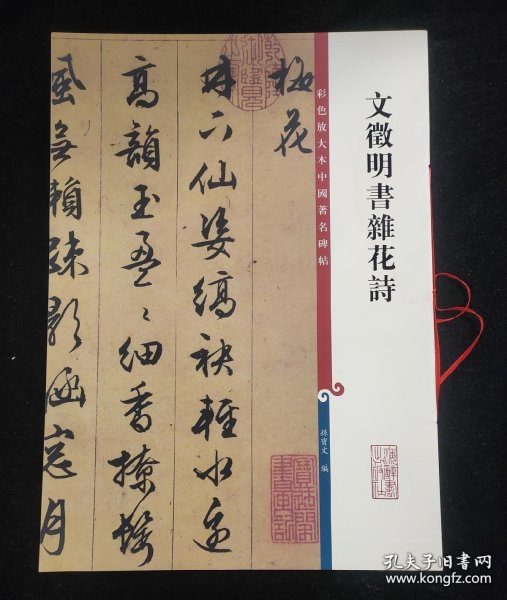 文徵明書雜花詩
彩色放大本中國著名碑帖
孫寶文 編
梅花
林下仙姿縞袂輕水邊
高韻玉盈〻細香撩鬢
風無賴疎影涵窓月
上海辭書出版社
孔夫子旧书网
www.kongfz.com